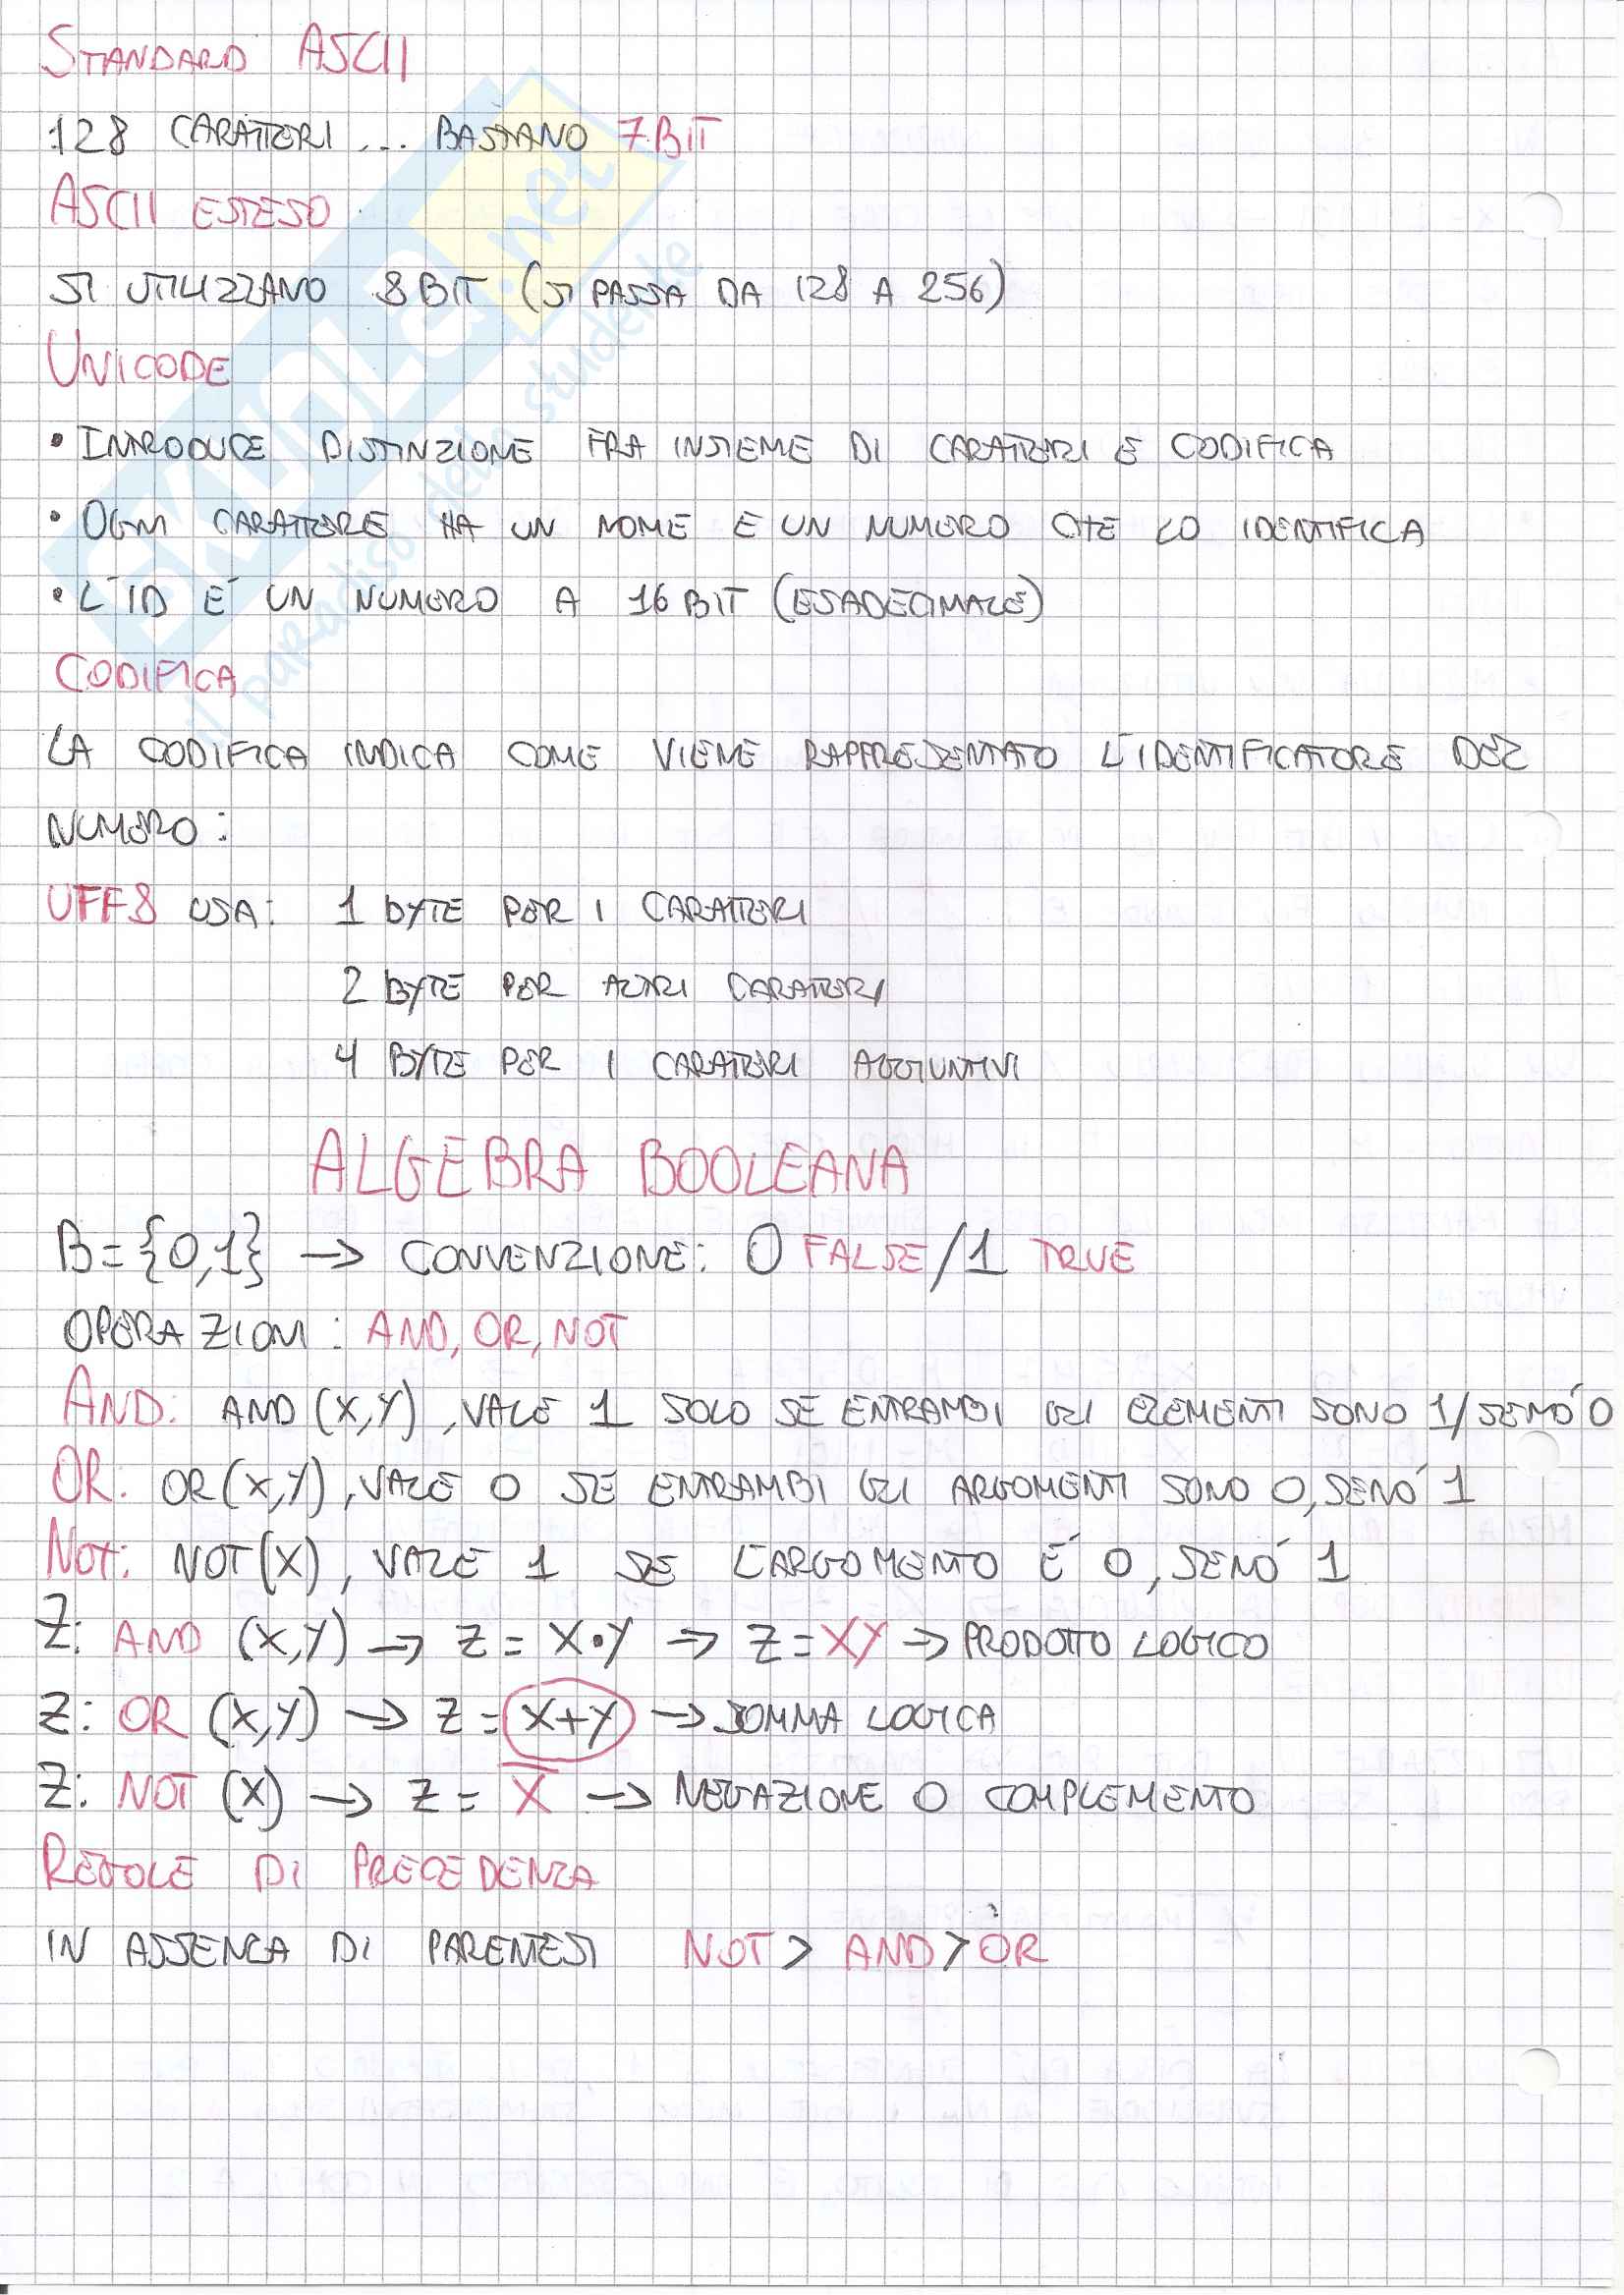 STANDARD ASCII
128 CARATTERI ... BASTANO 7 BIT
ASCII ESTESO
SI UTILIZZANO 8 BIT (SI PASSA DA 128 A 256)
UNICODE
• INTRODUCE DISTINZIONE FRA INSIEME DI CARATTERI E CODIFICA
• OGNI CARATTERE HA UN NOME E UN NUMERO CHE LO IDENTIFICA
• L'ID E' UN NUMERO A 16 BIT (ESADECIMALE)
CODIFICA
LA CODIFICA INDICA COME VIENE RAPPRESENTATO L'IDENTIFICATORE DEL
NUMERO:
UFF8 USA: 1 BYTE PER I CARATTERI
2 BYTE PER ALTRI CARATTERI
4 BYTE PER I CARATTERI AGGIUNTIVI
ALGEBRA BOOLEANA
B = {0,1} → CONVENZIONE: 0 FALSE / 1 TRUE
OPERAZIONI: AND, OR, NOT
AND: AND (X,Y), VALE 1 SOLO SE ENTRAMBI GLI ELEMENTI SONO 1/SENO' 0
OR: OR(X,Y), VALE 0 SE ENTRAMBI GLI ARGOMENTI SONO 0, SENO' 1
NOT: NOT(X), VALE 1 SE L'ARGOMENTO E' 0, SENO' 1
Z: AND (X,Y) → Z = X•Y → Z = XY → PRODOTTO LOGICO
Z: OR (X,Y) → Z = X+Y → SOMMA LOGICA
Z: NOT (X) → Z = X̅ → NEGAZIONE O COMPLEMENTO
REGOLE DI PRECEDENZA
IN ASSENZA DI PARENTESI NOT > AND > OR
skuola.net
il paradiso dello studente